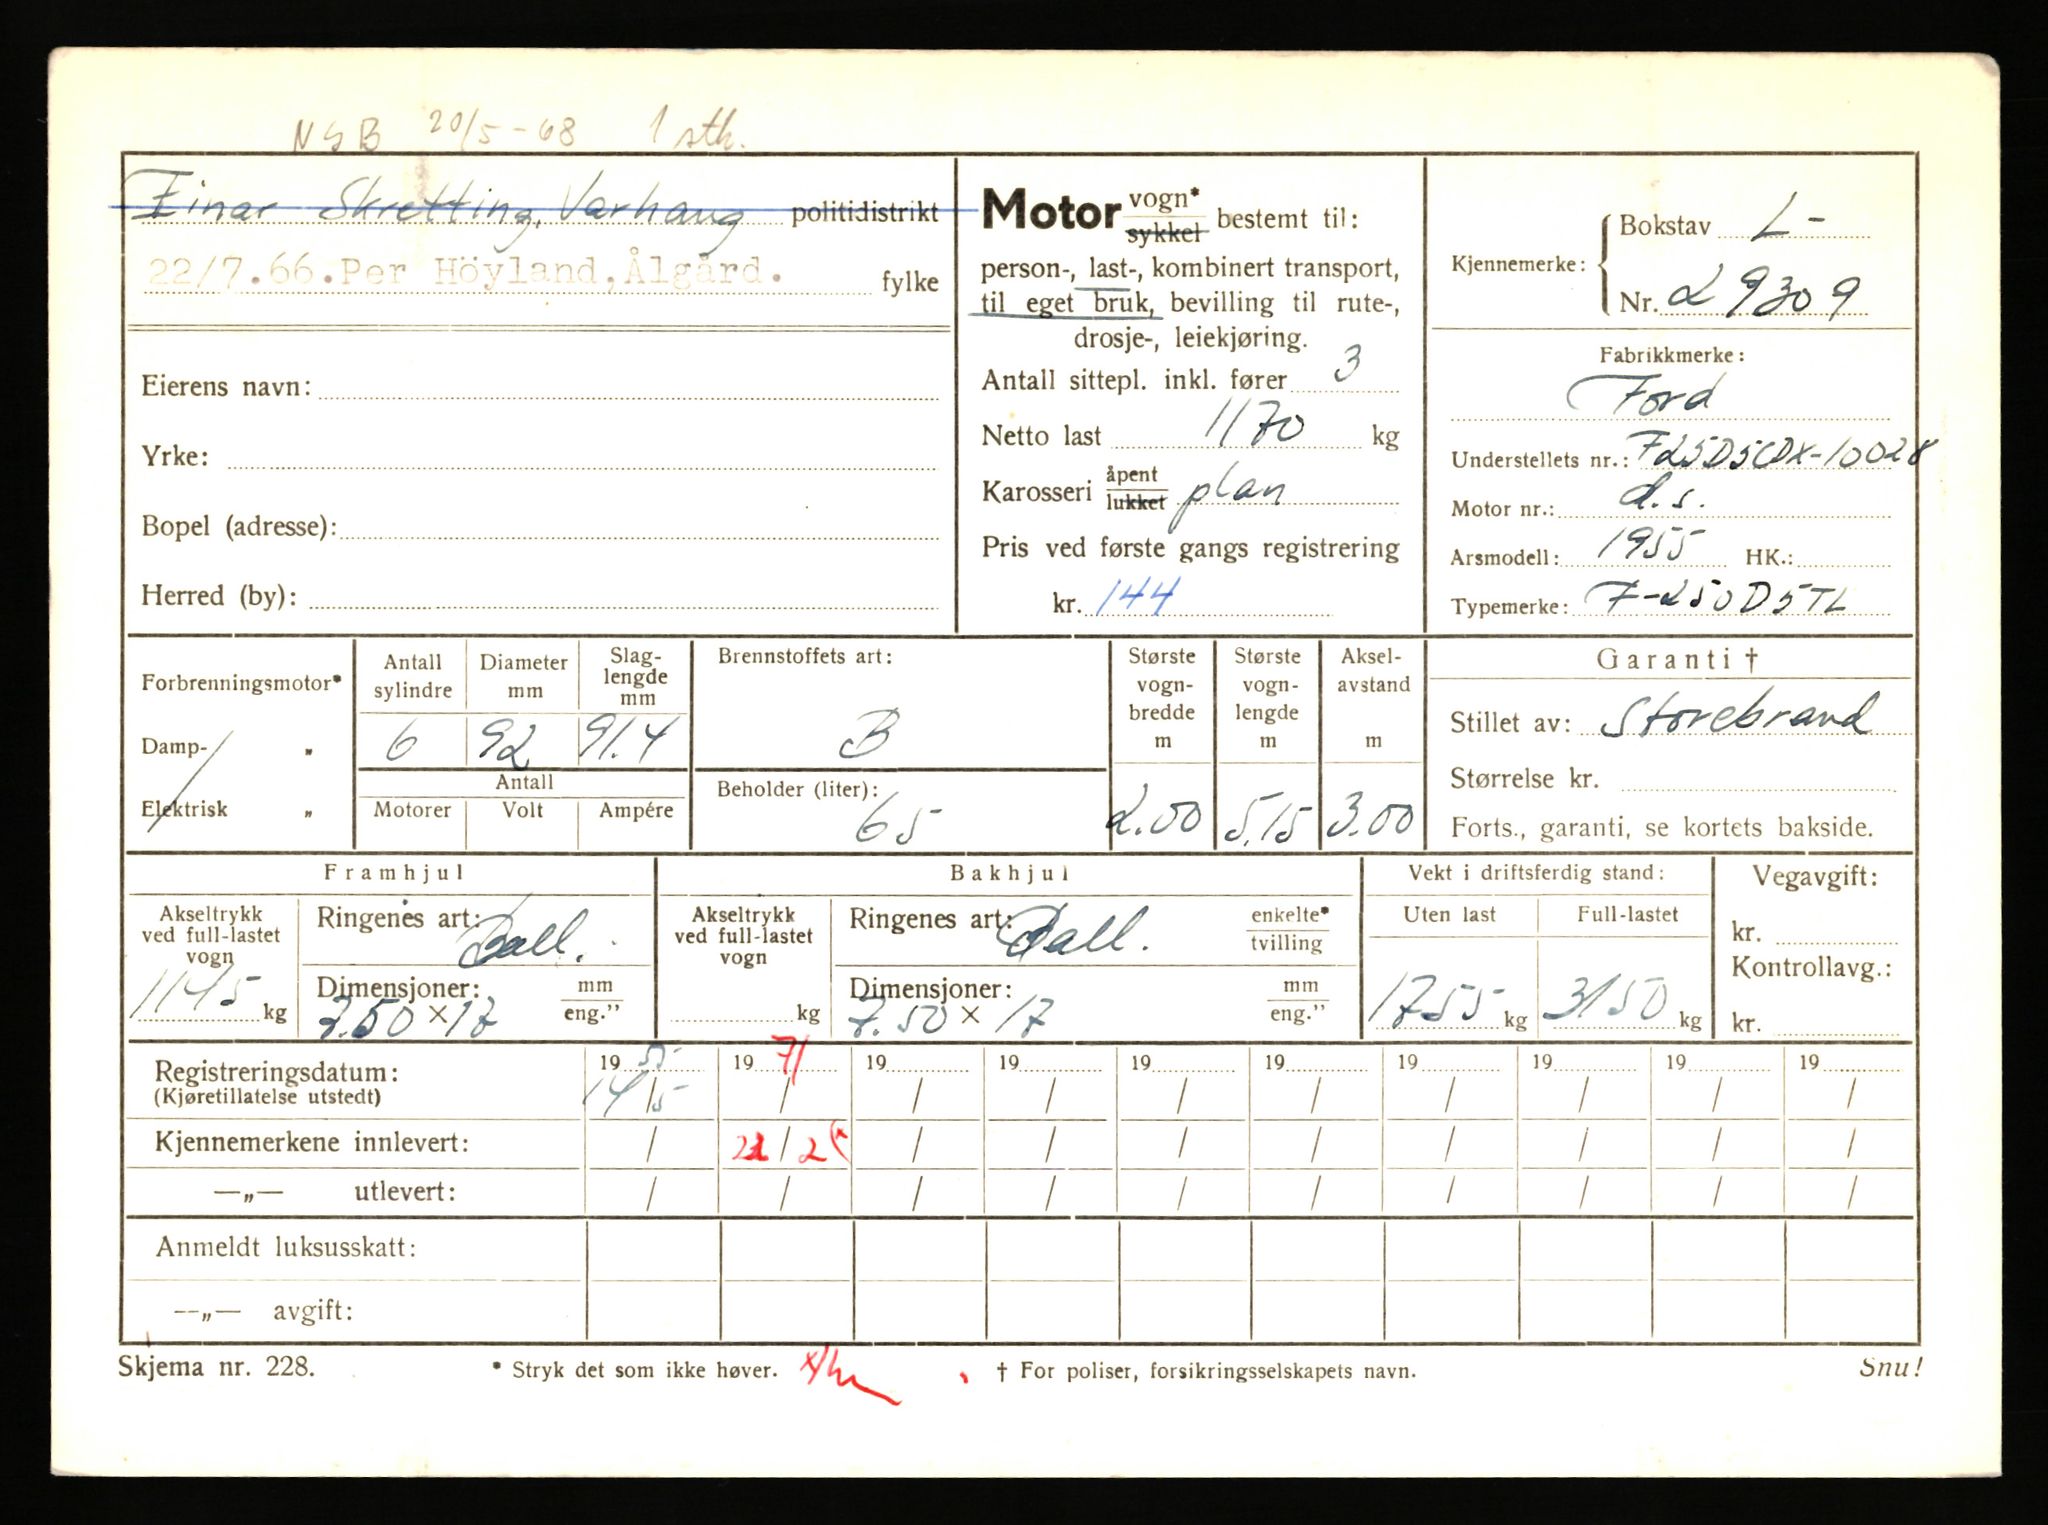 NSB 20/5-68 1 stk.
Einar Skretting, Varhaug politidistrikt
22/7.66.Per Höyland,Ålgård. fylke
Eierens navn:
Yrke:
Bopel (adresse):
Herred (by):
Motor vogn* sykkel bestemt til:
person-, last-, kombinert transport,
til eget bruk, bevilling til rute-,
drosje-, leiekjøring.
Antall sittepl. inkl. fører 3
Netto last 1170 kg
Karosseri åpent lukket plan
Pris ved første gangs registrering
kr. 144
Kjennemerke: Bokstav L-
Nr. 29309
Fabrikkmerke:
Ford
Understellets nr.: F25D5CDX-10028
Motor nr.: d.s.
Arsmodell: 1955 HK.:
Typemerke: F-250D5TL
Forbrenningsmotor*
Damp- „
Elektrisk „
Antall sylindre 6
Diameter mm 92
Slag- lengde mm 91.4
Antall
Motorer Volt Ampére
Brennstoffets art:
B
Beholder (liter):
65
Største vogn- bredde m 2.00
Største vogn- lengde m 5.15
Aksel- avstand m 3.00
Garanti †
Stillet av: Storebrand
Størrelse kr.
Forts., garanti, se kortets bakside.
Framhjul
Akseltrykk ved full-lastet vogn
1145 kg
Ringenes art: Ball.
Dimensjoner: mm eng.”
7.50 x 17
Bakhjul
Akseltrykk ved full-lastet vogn
kg
Ringenes art: Ball. enkelte* tvilling
Dimensjoner: mm eng.”
7.50 x 17
Vekt i driftsferdig stand:
Uten last Full-lastet
1755 kg 3150 kg
Vegavgift:
kr.
Kontrollavg.:
kr.
Registreringsdatum: 19 55 19 71 19 19 19 19 19 19 19 19
(Kjøretillatelse utstedt) 14/5 / / / / / / / / /
Kjennemerkene innlevert: / 22/2 (x / / / / / / / /
—„— utlevert: / / / / / / / / / /
Anmeldt luksusskatt:
—„— avgift:
Skjema nr. 228. * Stryk det som ikke høver. † For poliser, forsikringsselskapets navn. Snu!